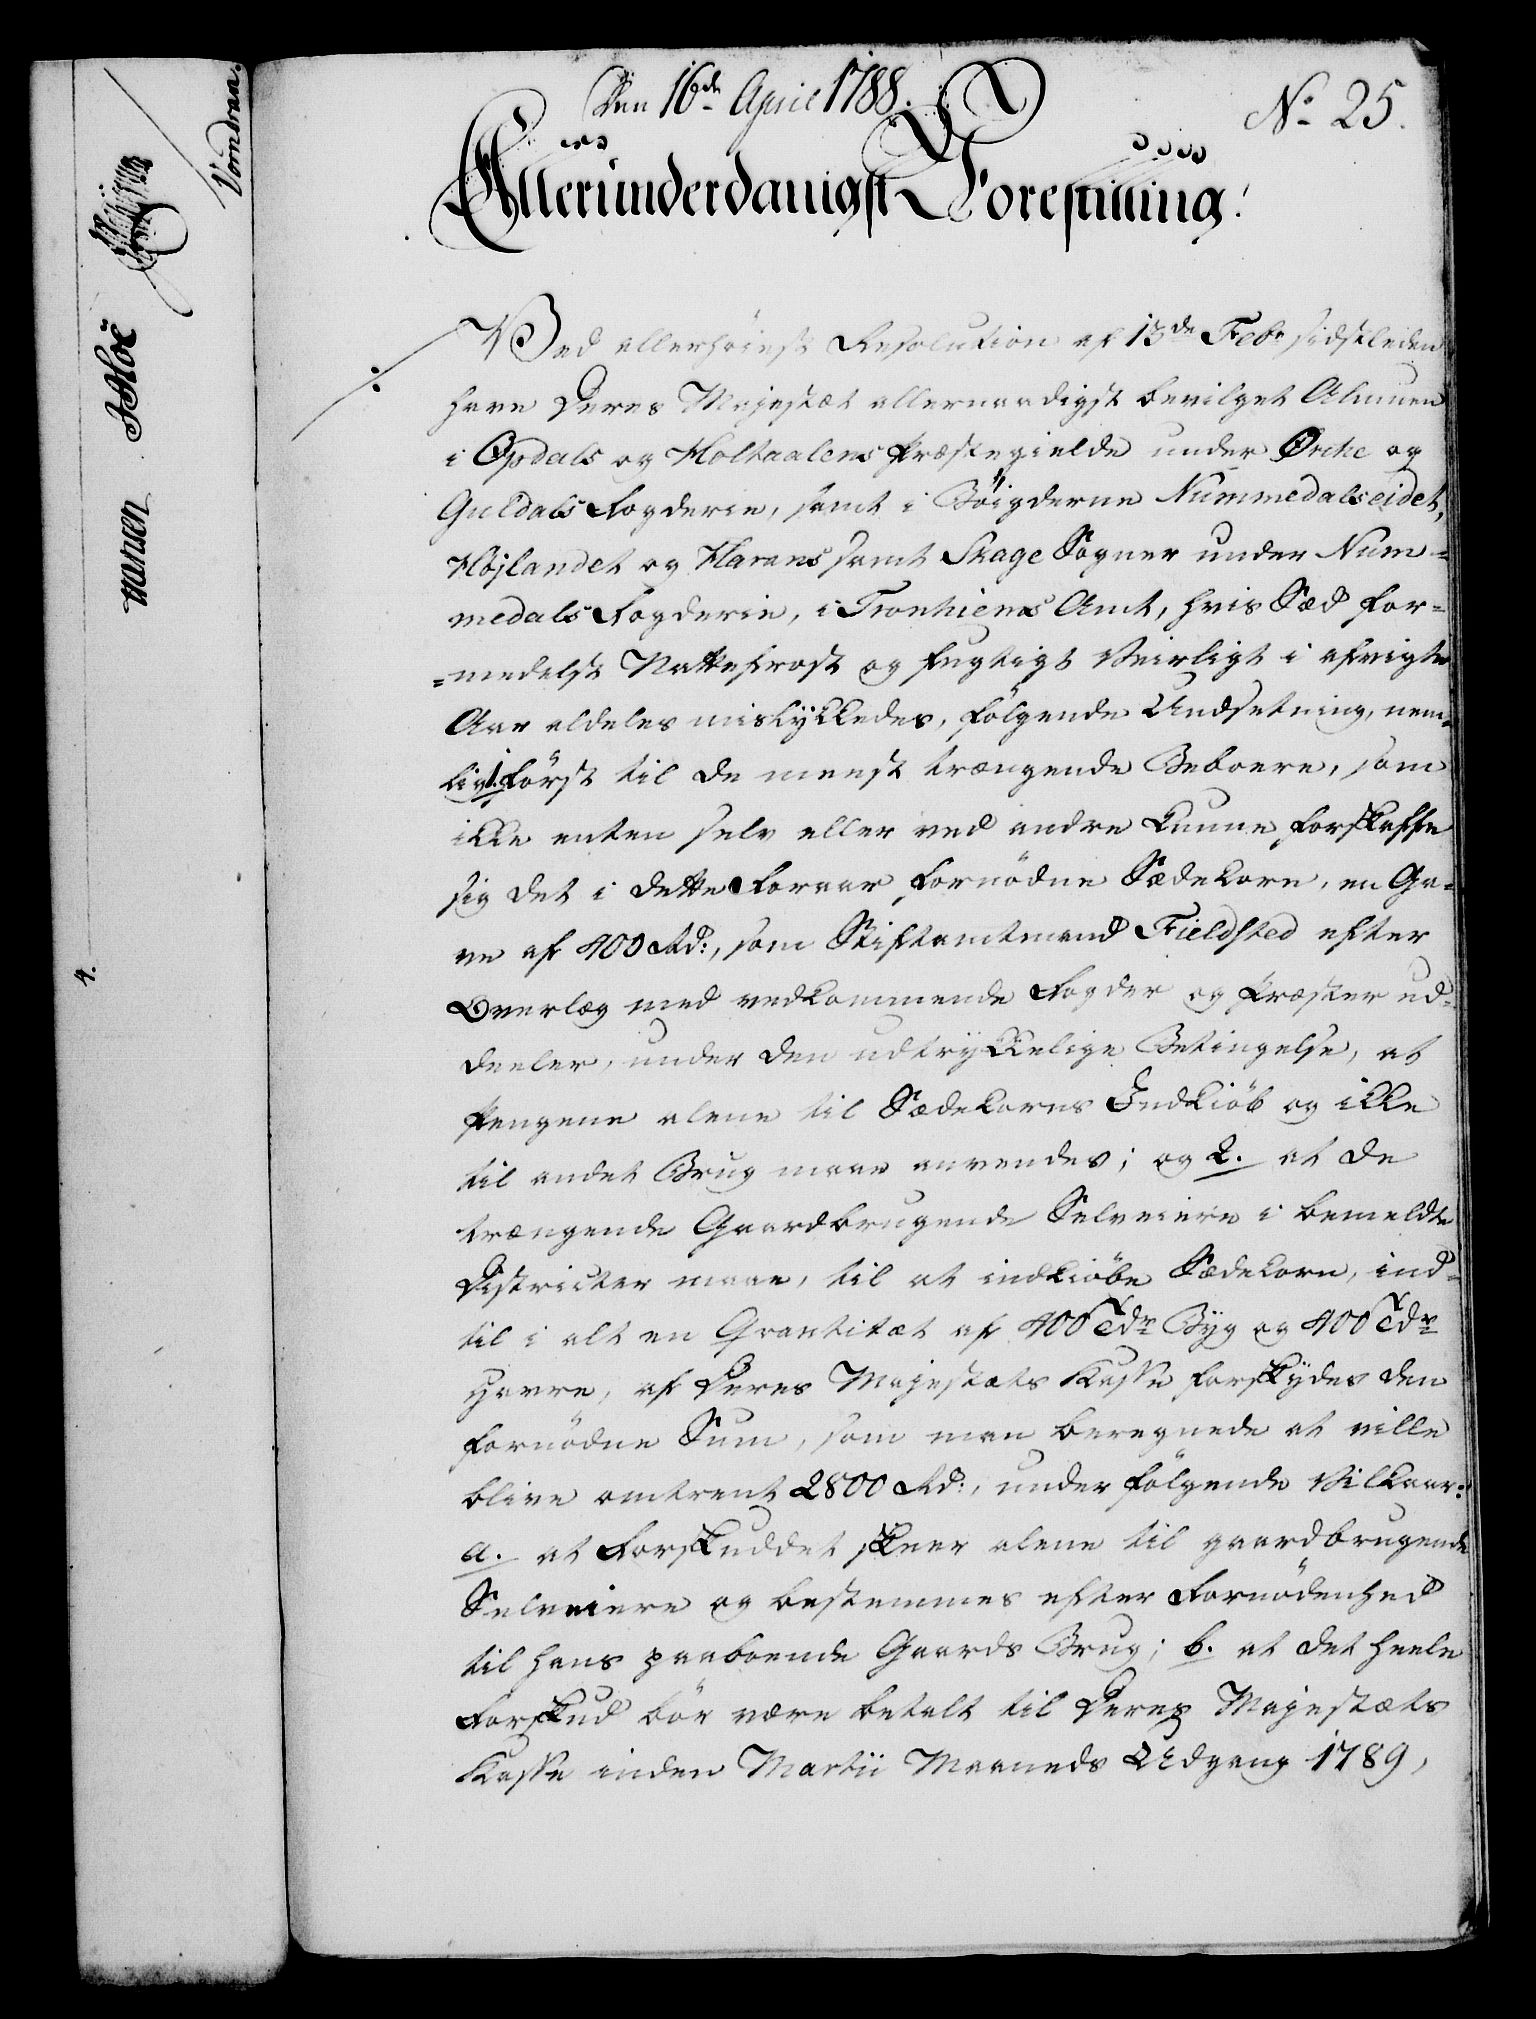 Den 16de April 1788.
No 25.
Allerunderdanigst Forestilling!
Ved allerhöiest Resolution af 13de Febr sidstleden
have Deres Majestæt allernaadigst bevilget Almuen
i Opdals og Holtaalens Præstegielde under Orche og
Guldals Fogderie, samt i Böigderne Nummedalseidet,
Höjlandet og Harans samt Skage Sogner under Num-
medals Fogderie, i Tronhiems Amt, hvis Sæd for-
=medelst Nattefrost og fugtigt Veirligt i afvigte
Aar aldeles mislykkedes, fölgende Undsetning, nem-
lig 1. Först til de meest trængende Beboere, som
ikke enten selv eller ved andre kunne forskaffe
sig det i dette Foraar fornödne Sædekorn, en Ga-
ve af 400 Rd:, som Stiftamtmand Fieldsted efter
Overlæg med vedkommende Fogder og Præster ud-
deeler, under den udtrykkelige Betingelse, at
Pengene alene til Sædekorns Indkiöb og ikke
til andet Brug maae anvendes; og 2. at de
trængende Gaardbrugende Selveiere i bemeldte
Districter maae, til at indkiöbe Sædekorn, ind-
til i alt en Qvantitæt af 400 Tdr Byg og 400 Tdr
Havre, af Deres Majestæts Kasse forskydes den
fornödne Sum, som man beregnede at ville
blive omtrent 2800 Rd:, under fölgende Vilkaar:
a. at Forskuddet skeer alene til gaardbrugende
Selveiere og bestemmes efter Fornödenhed
til hans paaboende Gaards Brug; b. at det heele
Forskud bör være betalt til Deres Majestæts
Kasse inden Martii Maaneds Udgang 1789,
Vondraa.
JHoë
Hansen
4.